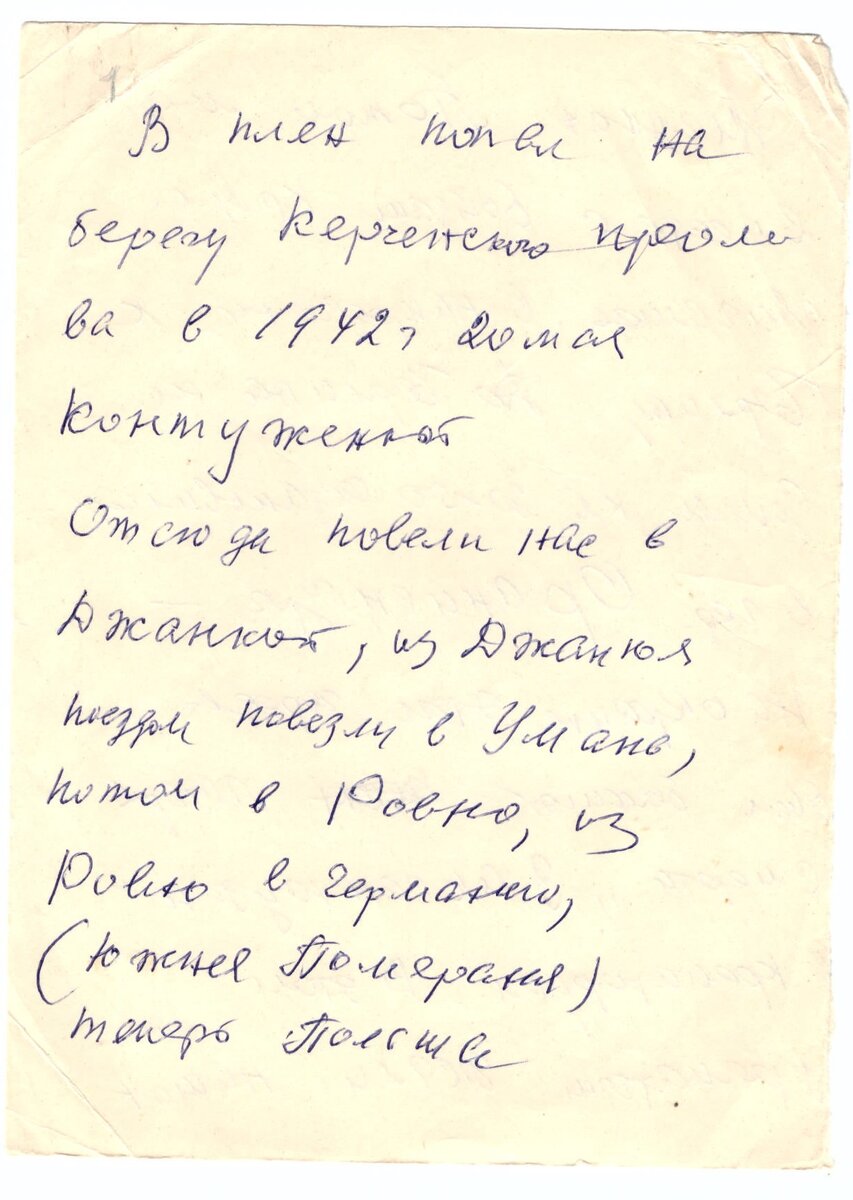 1
В плен попал на
берегу Керченского проли
ва в 1942г 20 мая
Контуженный
Отсюда повели нас в
Джанкой, из Джанкоя
поездом повезли в Умань,
потом в Ровно, из
Ровно в Германию,
(Южная Помераня)
теперь Польша